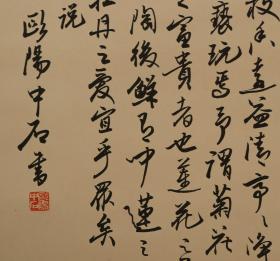 枝香遠益清亭亭淨
褻玩焉予謂菊花
之富貴者也蓮花之
陶後鮮有聞蓮之
牡丹之愛宜乎眾矣
說
歐陽中石書